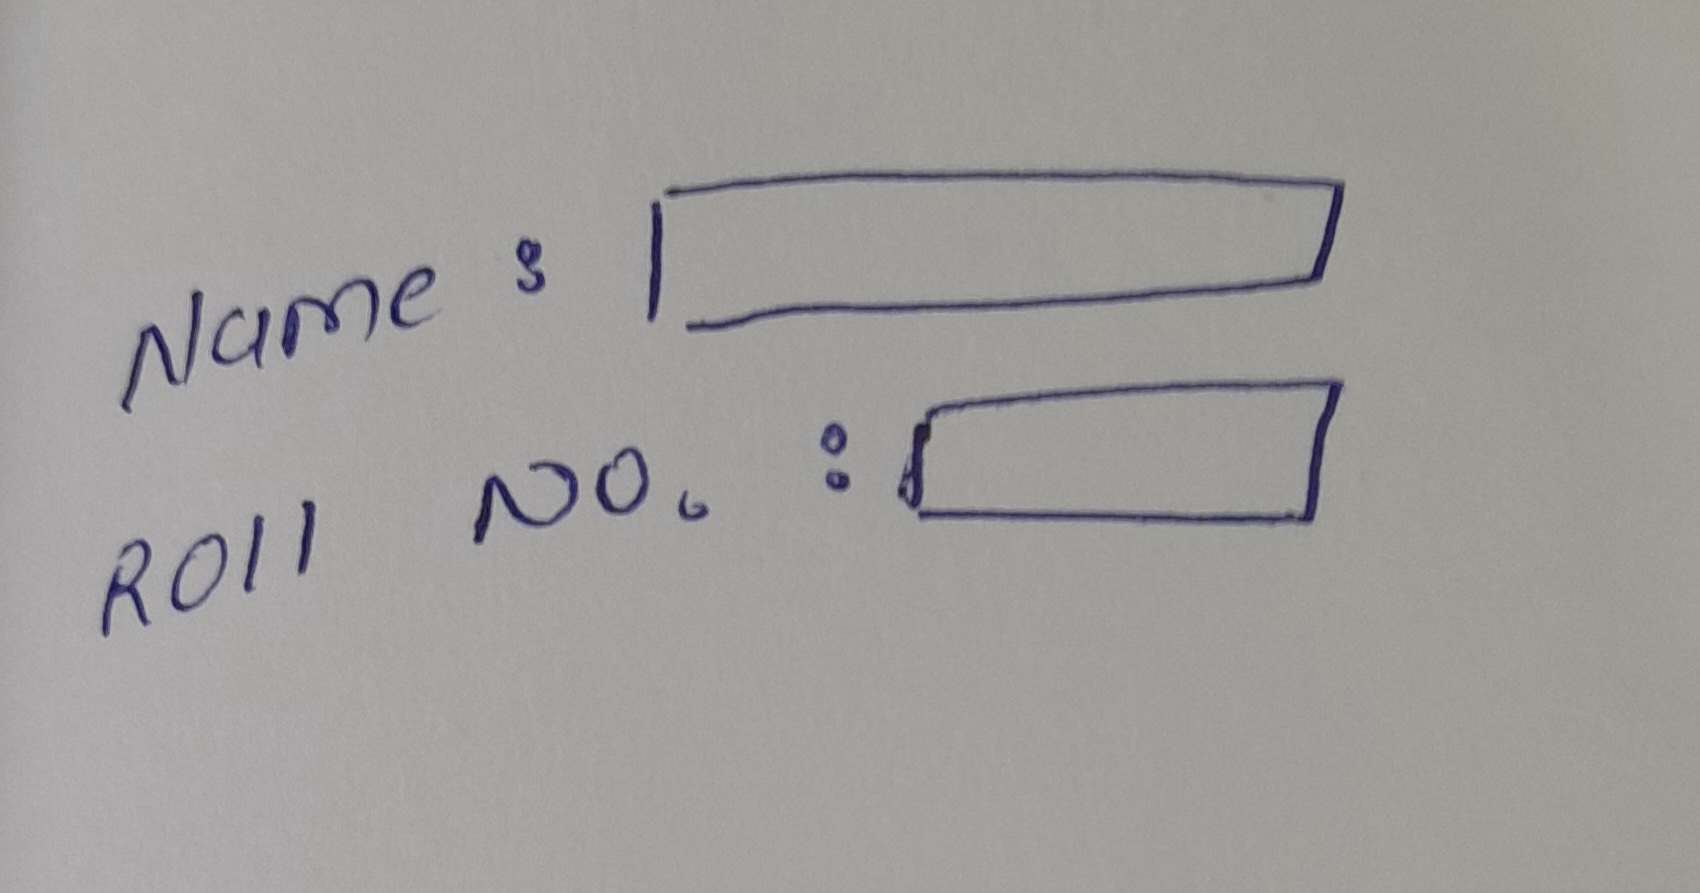 Name :
Roll NO. :